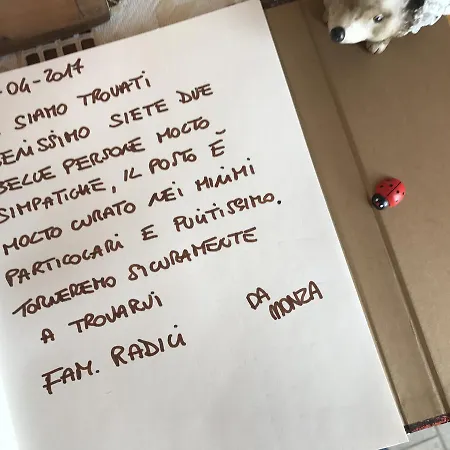 -04-2017
SIAMO TROVATI
BENISSIMO SIETE DUE
BELLE PERSONE MOLTO
SIMPATICHE, IL POSTO È
MOLTO CURATO NEI MINIMI
PARTICOLARI E PULITISSIMO.
TORNEREMO SICURAMENTE
A TROVARVI
DA MONZA
FAM. RADICI